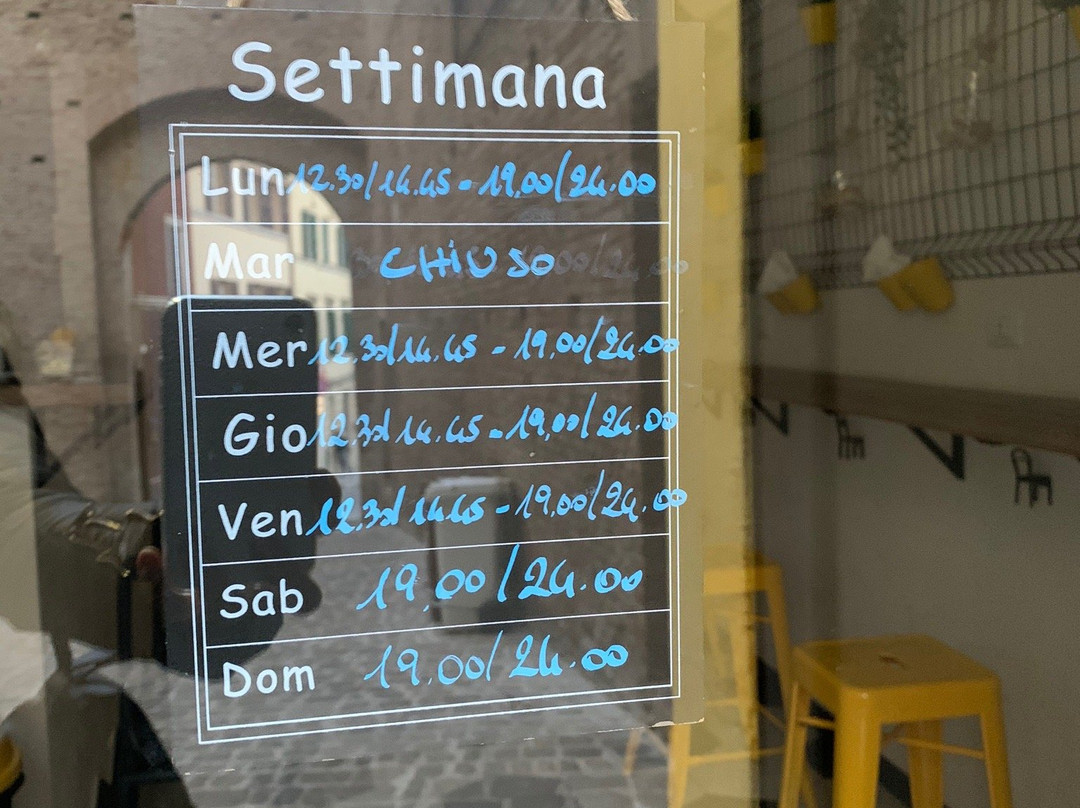 Settimana
Lun 12.30/14.45 - 19.00/24.00
Mar CHIUSO
Mer 12.30/14.45 - 19.00/24.00
Gio 12.30/14.45 - 19.00/24.00
Ven 12.30/14.45 - 19.00/24.00
Sab 19.00/24.00
Dom 19.00/24.00